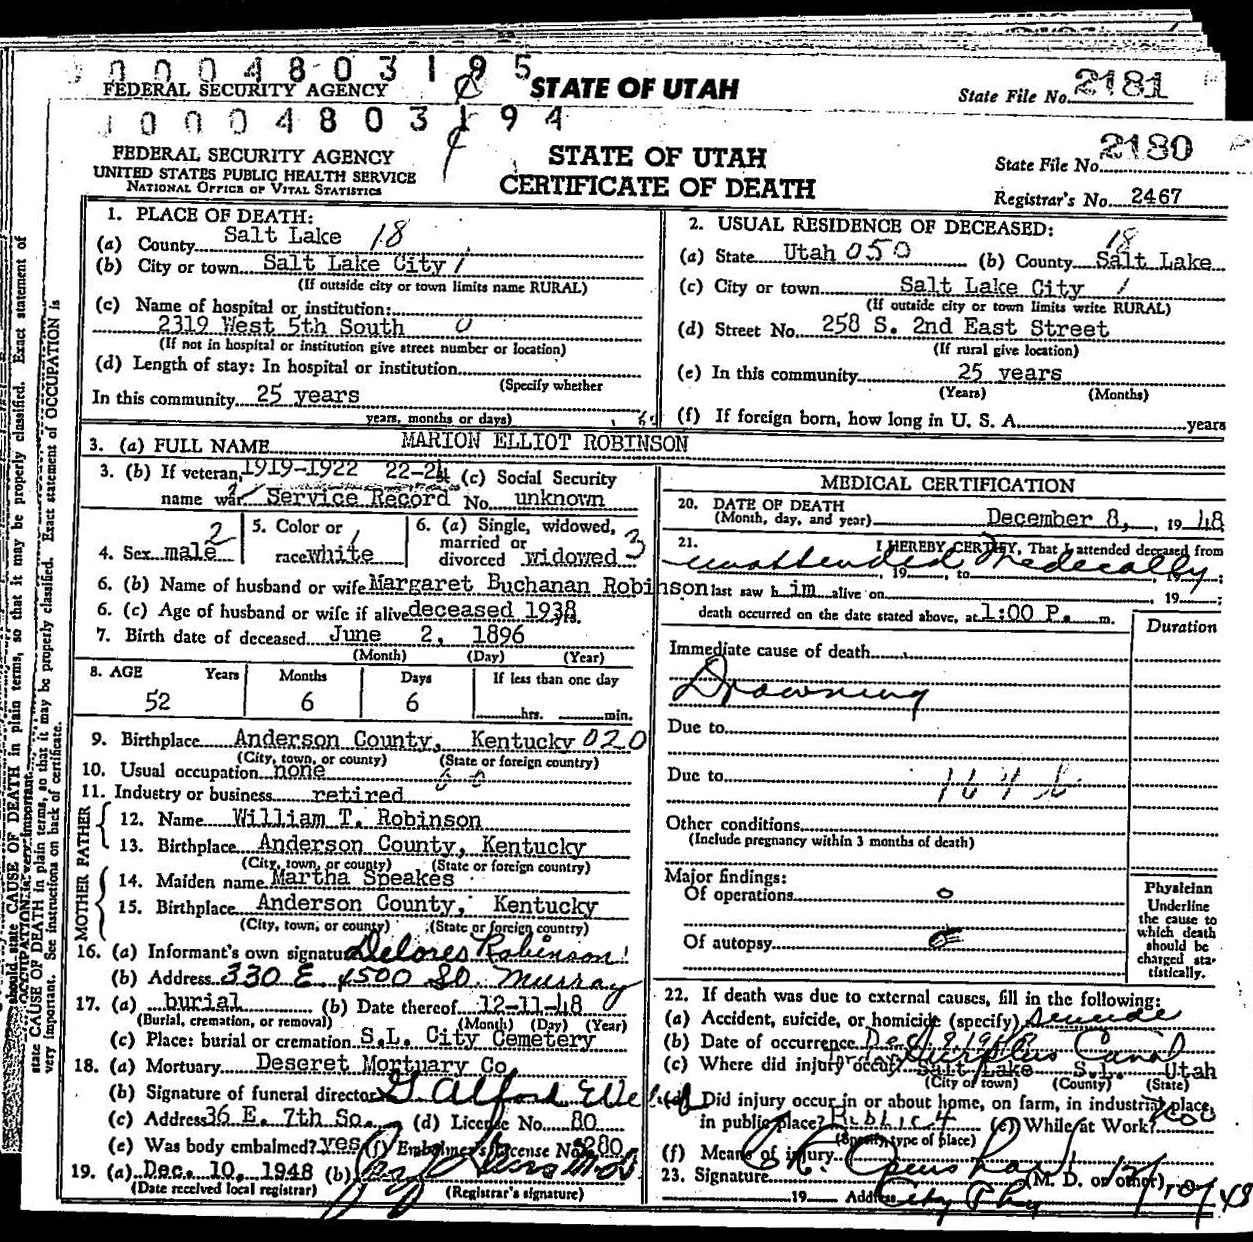 0 0 0 4 8 0 3 1 9 5
FEDERAL SECURITY AGENCY
STATE OF UTAH
State File No. 2181
1 0 0 0 4 8 0 3 1 9 4
FEDERAL SECURITY AGENCY
UNITED STATES PUBLIC HEALTH SERVICE
NATIONAL OFFICE OF VITAL STATISTICS
STATE OF UTAH
CERTIFICATE OF DEATH
State File No. 2180
Registrar's No. 2467
1. PLACE OF DEATH:
(a) County Salt Lake 18
(b) City or town Salt Lake City 1
(If outside city or town limits name RURAL)
(c) Name of hospital or institution:
2319 West 5th South 0
(If not in hospital or institution give street number or location)
(d) Length of stay: In hospital or institution
(Specify whether
In this community 25 years
years, months or days)
2. USUAL RESIDENCE OF DECEASED:
(a) State Utah 050 (b) County Salt Lake 18
(c) City or town Salt Lake City 1
(If outside city or town limits write RURAL)
(d) Street No. 258 S. 2nd East Street
(If rural give location)
(e) In this community 25 years
(Years) (Months)
(f) If foreign born, how long in U. S. A. years
3. (a) FULL NAME MARION ELLIOT ROBINSON
3. (b) If veteran, 1919-1922 22-24 (c) Social Security
name war Service Record No. unknown
4. Sex male 2
5. Color or race white 1
6. (a) Single, widowed, married or divorced widowed 3
6. (b) Name of husband or wife Margaret Buchanan Robinson
6. (c) Age of husband or wife if alive deceased 1938
7. Birth date of deceased June 2, 1896
(Month) (Day) (Year)
8. AGE Years Months Days If less than one day
52 6 6 hrs. min.
9. Birthplace Anderson County, Kentucky 020
(City, town, or county) (State or foreign country)
10. Usual occupation none
11. Industry or business retired
FATHER
12. Name William T. Robinson
13. Birthplace Anderson County, Kentucky
(City, town, or county) (State or foreign country)
MOTHER
14. Maiden name Martha Speakes
15. Birthplace Anderson County, Kentucky
(City, town, or county) (State or foreign country)
16. (a) Informant's own signature Delores Robinson
(b) Address 330 E 4500 So. Murray
17. (a) burial (b) Date thereof 12-11-48
(Burial, cremation, or removal) (Month) (Day) (Year)
(c) Place: burial or cremation S.L. City Cemetery
18. (a) Mortuary Deseret Mortuary Co
(b) Signature of funeral director
(c) Address 36 E. 7th So. (d) License No. 80
(e) Was body embalmed? yes (f) Embalmer's License No. 280
19. (a) Dec. 10, 1948 (b)
(Date received local registrar) (Registrar's signature)
MEDICAL CERTIFICATION
20. DATE OF DEATH
(Month, day, and year) December 8, 1948
21. I HEREBY CERTIFY, That I attended deceased from
unattended Medically , 19 , to 19 ;
last saw him alive on 19 ;
death occurred on the date stated above, at 1:00 P. m.
Duration
Immediate cause of death
Drowning
Due to
Due to
Other conditions
(Include pregnancy within 3 months of death)
Major findings:
Of operations 0
Of autopsy
Physician
Underline
the cause to
which death
should be
charged sta-
tistically.
22. If death was due to external causes, fill in the following:
(a) Accident, suicide, or homicide (specify) suicide
(b) Date of occurrence
(c) Where did injury occur? Surplus Canal Salt Lake S.L. Utah
(City or town) (County) (State)
(d) Did injury occur in or about home, on farm, in industrial place,
in public place? Public (e) While at Work?
(Specify type of place)
(f) Means of injury
23. Signature (M. D. or other) 12/10/48
19 Address City Phy